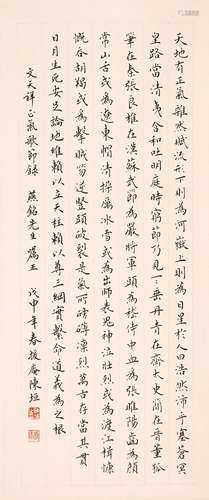 天地有正氣雜然賦流形下則為河嶽上則為日星於人曰浩然沛乎塞蒼冥
皇路當清夷含和吐明庭時窮節乃見一一垂丹青在齊太史簡在晉董狐
筆在秦張良椎在漢蘇武節為嚴將軍頭為嵇侍中血為張睢陽齒為顏
常山舌或為遼東帽清操厲冰雪或為出師表鬼神泣壯烈或為渡江楫慷
慨吞胡羯或為擊賊笏逆豎頭破裂是氣所磅礴凜烈萬古存當其貫
日月生死安足論地維賴以立天柱賴以尊三綱實繫命道義為之根
文天祥正氣歌節錄 燕銘先生屬正 戊申年春援庵陳垣